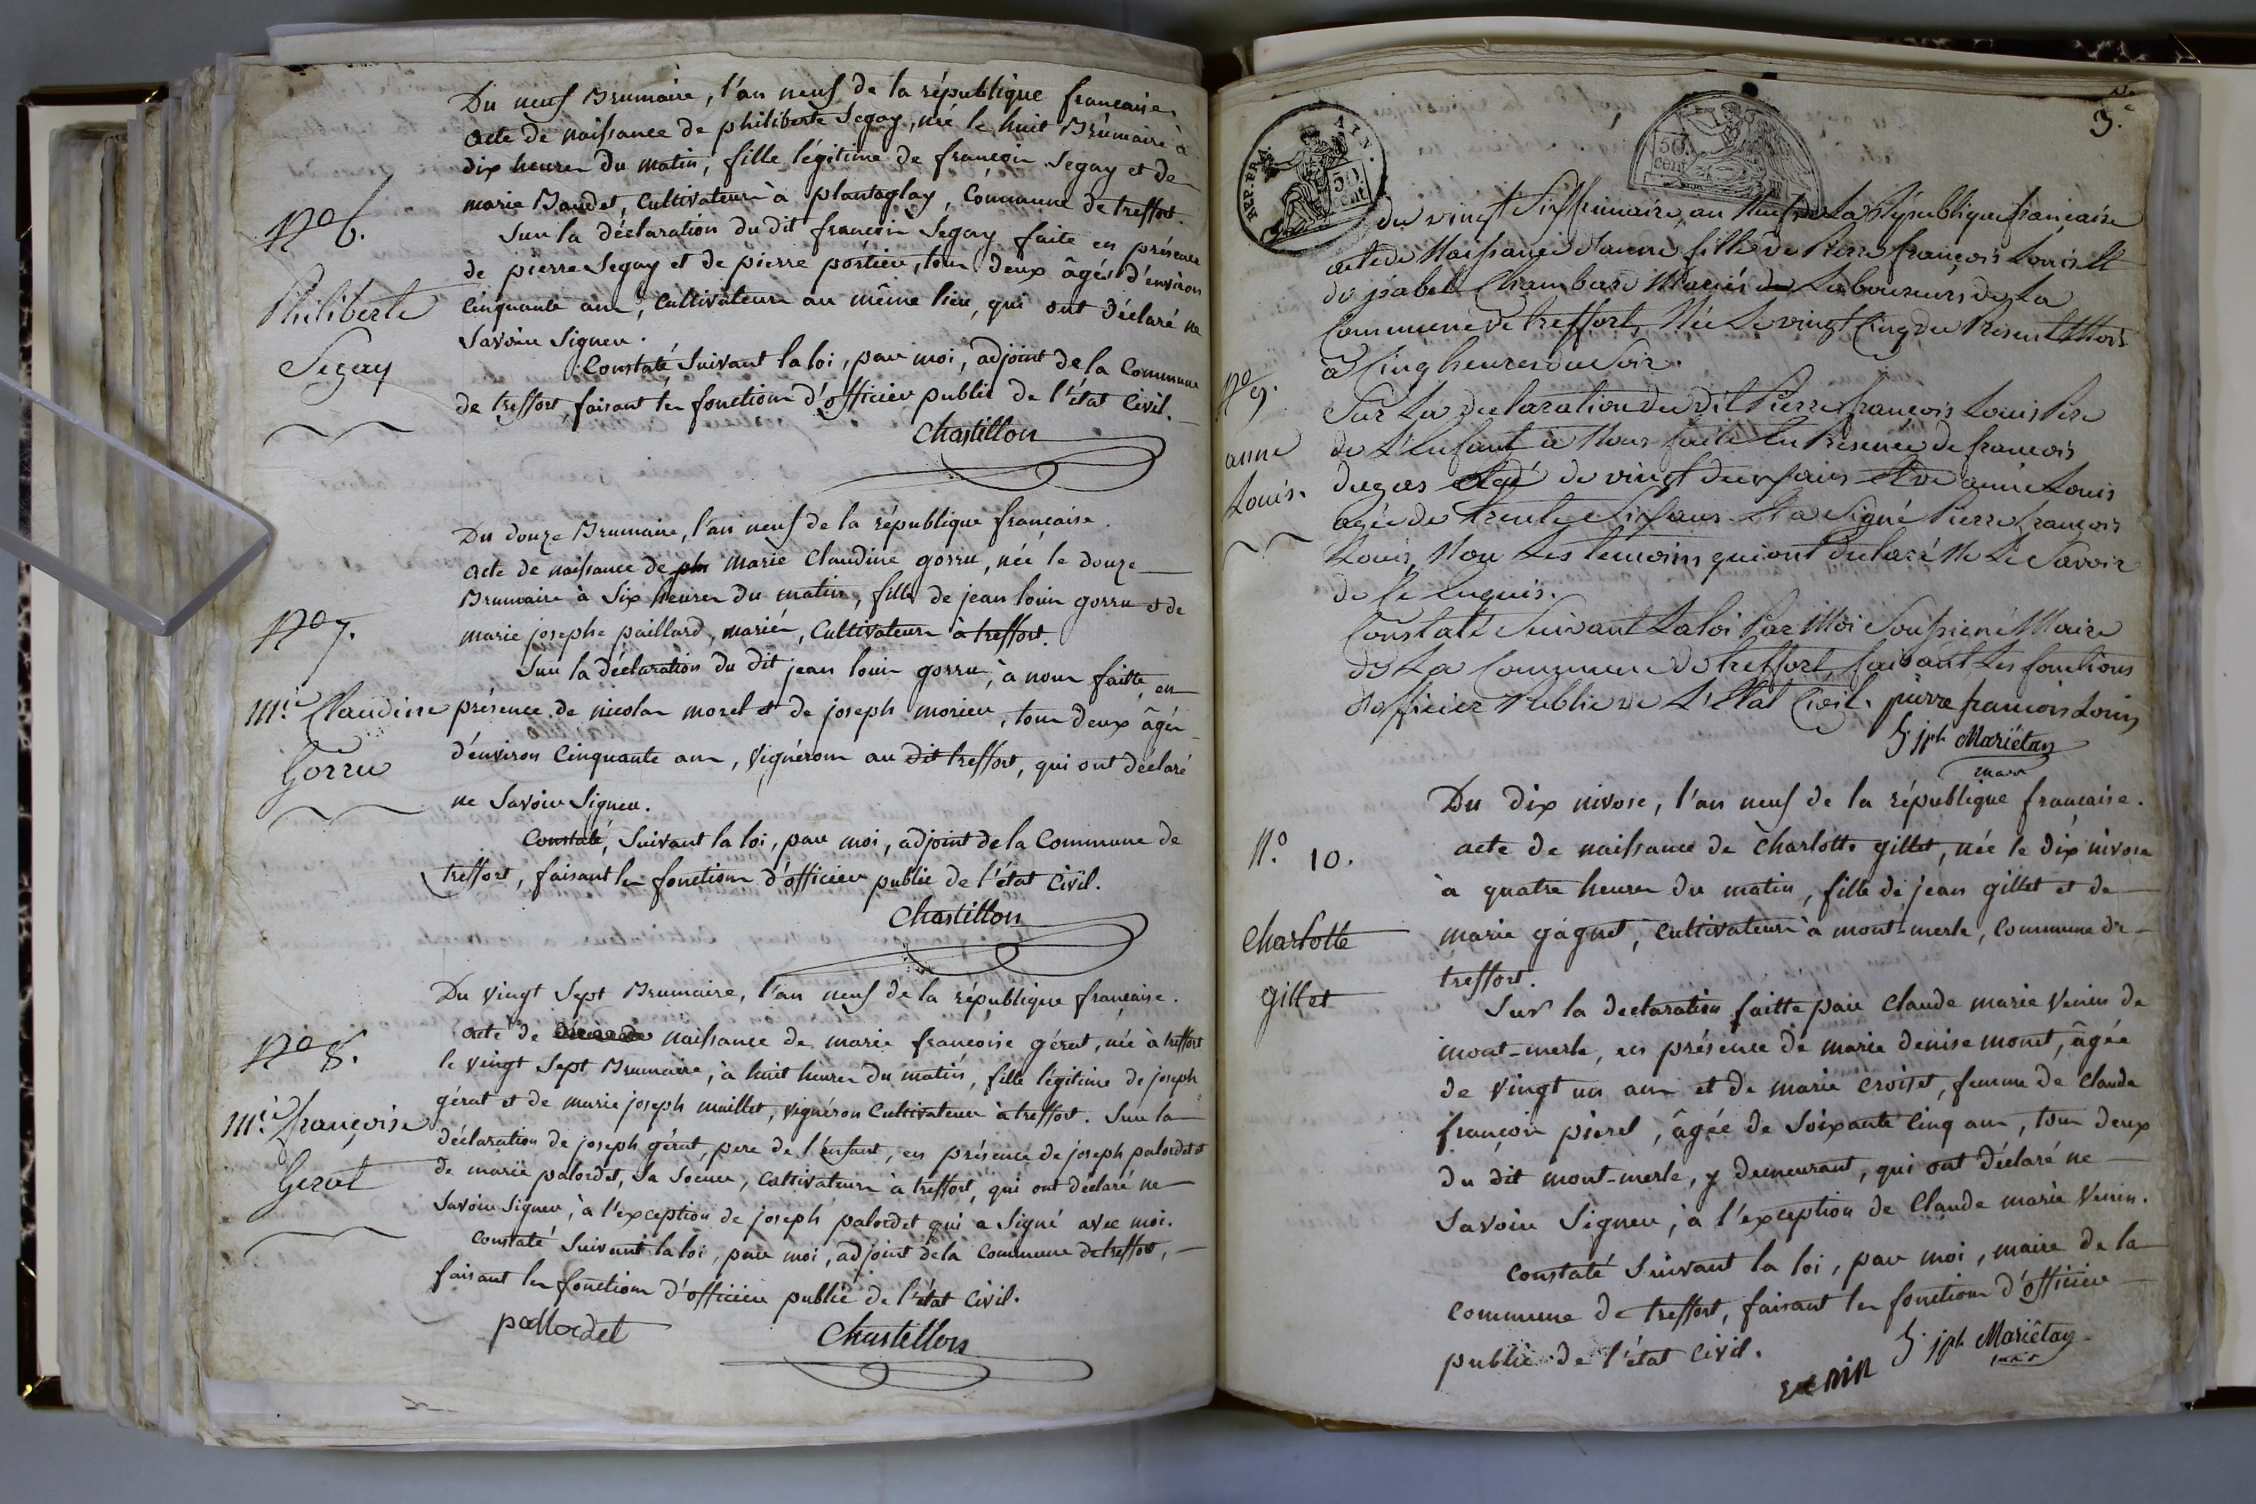 Du neuf Brumaire, l'an neuf de la république francaise
acte de naissance de philiberte Segay, née le huit Brumaire à
dix heures du matin, fille légitime de françois Segay et de
marie Baudet, Cultivateurs à plantaglay, Commune de treffort.
Sur la déclaration du dit françois Segay faite en présence
de pierre Segay et de pierre postieu, tous deux âgés d'environ
Cinquante ans, Cultivateurs au même lieu, qui ont déclaré ne
Savoir Signer.
Constaté Suivant la loi, par moi, adjoint de la Commune
de treffort, faisant les fonctions d'officier public de l'état Civil.
Chastillon
No 6.
Philiberte
Segay
Du douze Brumaire, l'an neuf de la république française.
acte de naissance de marie Claudine gorru, née le douze
Brumaire à Six heures du matin, fille de jean louis gorru et de
marie josephe paillard, mariés, Cultivateurs à treffort.
Sur la déclaration du dit jean louis gorru, à nous faitte, en
présence de nicolas morel et de joseph morieu, tous deux âgés
d'environ Cinquante ans, Vignérons au dit treffort, qui ont déclaré
ne Savoir Signer.
Constaté, Suivant la loi, par moi, adjoint de la Commune de
treffort, faisant les fonctions d'officier public de l'état Civil.
Chastillon
No 7.
Mie Claudine
Gorru
Du vingt Sept Brumaire, l'an neuf de la république française.
acte de naissance de marie françoise gérat, née à treffort
le vingt Sept Brumaire, à huit heures du matin, fille légitime de joseph
gérat et de marie joseph maillet, vignéron Cultivateur à treffort. Sur la
déclaration de joseph gérat, pere de l'enfant, en présence de joseph palordet et
de marie palordet, Sa Soeur, Cultivateurs à treffort, qui ont déclaré ne
Savoir Signer, à l'exception de joseph palordet qui a Signé avec moi.
Constaté Suivant la loi, par moi, adjoint de la Commune de treffort,
faisant les fonctions d'officier public de l'état Civil.
pallordet
Chastillon
No 8.
Mie françoise
Gerat
3.e
REP. FRA.
AIN.
50 cent
50. cent
du vingt Six frimaire, an Neuf de La République française
acte de Naissance d'anne fille de Pierre françois Louis Et
d'jsabel Chambard Mariés Laboureurs de La
Commune de treffort, Née Le vingt Cinq du Present Mois
à Cinq heures du Soir.
Sur La declaration du dit Pierre françois Louis Pere
de L'Enfant à Nous faite En Présence de francois
dugas Agé de vingt deux ans Et de anne Louis
agée de trente Six ans Et a Signé Pierre françois
Louis Non Les témoins qui ont declaré Ne Le Savoir
de Ce Enquis.
Constaté Suivant La loi Par Moi Soussigné Maire
de La Commune de treffort, faisant Les fonctions
d'officier Public de L'Etat Civil. pierre francois Louis
jph Mariétan
maire
No 9.
anne
Louis.
Du Dix nivose, l'an neuf de la république francaise.
acte de naissance de Charlotte gillet, née le dix nivose
à quatre heures du matin, fille de jean gillet et de
marie gagnet, Cultivateurs à mont-merle, Commune de
treffort.
Sur la declaration faitte par Claude marie Venin de
mont-merle, en présence de marie denise monet, âgée
de vingt un ans et de marie croiset, femme de Claude
françois pierel, âgée de Soixante Cinq ans, tous deux
du dit mont-merle, y demeurant, qui ont déclaré ne
Savoir Signer, à l'exception de Claude marie Venin.
Constaté Suivant la loi, par moi, maire de la
Commune de treffort, faisant les fonctions d'officier
public de l'état Civil.
jph Mariétan
maire
venin
N.o 10.
Charlotte
gillet